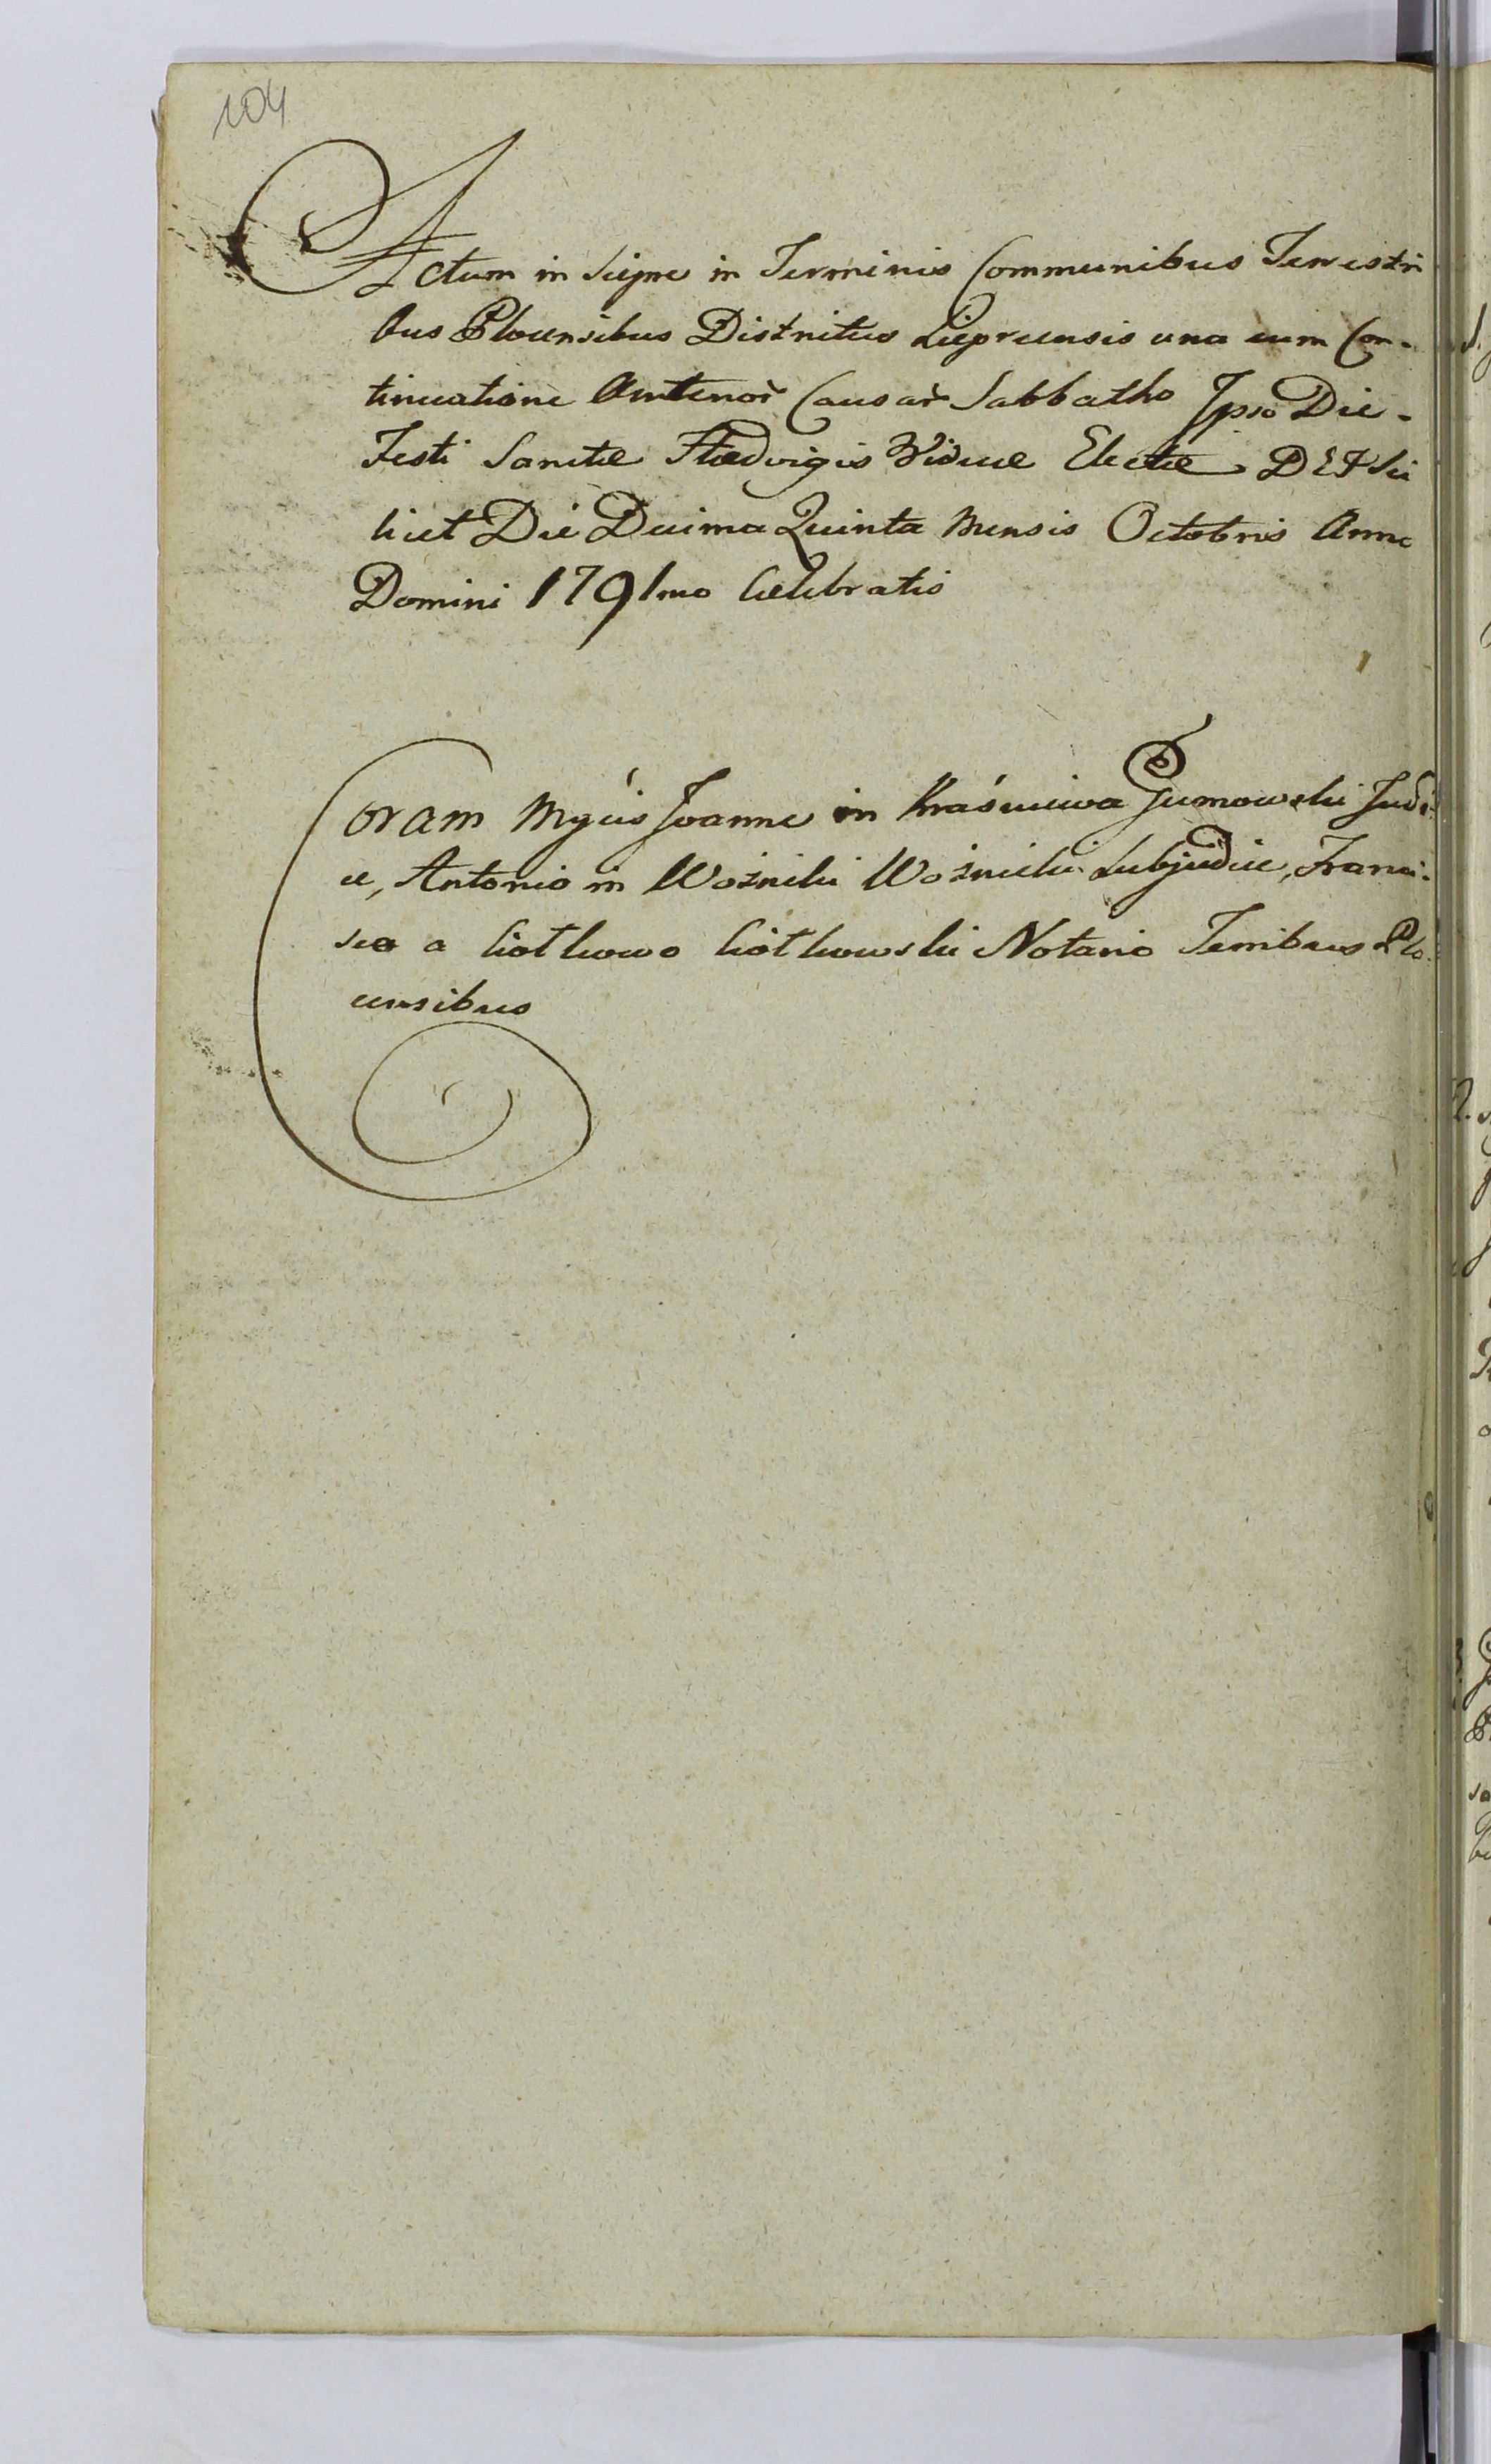 104
Actum in Sierpc in Terminis Communibus Terrestri
bus Plocensibus Districtus Sieprcensis una cum Con-
tinuatione Anterior Causar Sabbatho Ipso Die-
Festi Sanctæ Hædvigis Viduæ Electæ Sci
licet Die Decima Quinta Mensis Octobris Anno
Domini 1791mo Celebratis
Coram Mgcis Joanne in Kraśniewa Gumowski Judi-
ce, Antonio in Woźniki Woźnicki Subjudice, Franci-
sco a Ciółkowo Ciółkowski Notario Terribus Plo-
censibus